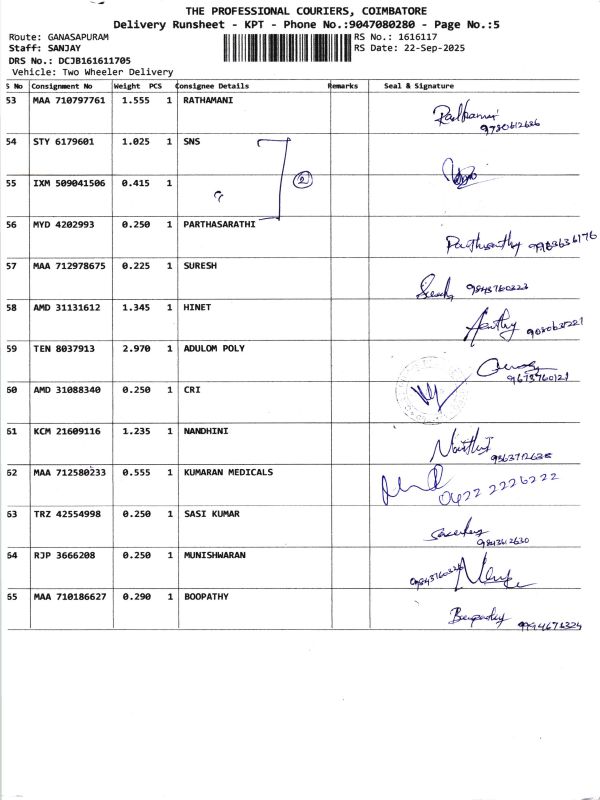 THE PROFESSIONAL COURIERS, COIMBATORE
Delivery Runsheet - KPT - Phone No.:9047080280 - Page No.:5
Route: GANASAPURAM
RS No.: 1616117
Staff: SANJAY
RS Date: 22-Sep-2025
DRS No.: DCJB161611705
Vehicle: Two Wheeler Delivery
S No Consignment No Weight PCS Consignee Details Remarks Seal & Signature
53 MAA 710797761 1.555 1 RATHAMANI
54 STY 6179601 1.025 1 SNS
55 IXM 509041506 0.415 1 2
56 MYD 4202993 0.250 1 PARTHASARATHI
57 MAA 712978675 0.225 1 SURESH
58 AMD 31131612 1.345 1 HINET
59 TEN 8037913 2.970 1 ADULOM POLY
60 AMD 31088340 0.250 1 CRI
61 KCM 21609116 1.235 1 NANDHINI
62 MAA 712580233 0.555 1 KUMARAN MEDICALS 0422 2226222
63 TRZ 42554998 0.250 1 SASI KUMAR
64 RJP 3666208 0.250 1 MUNISHWARAN
65 MAA 710186627 0.290 1 BOOPATHY 9994676324